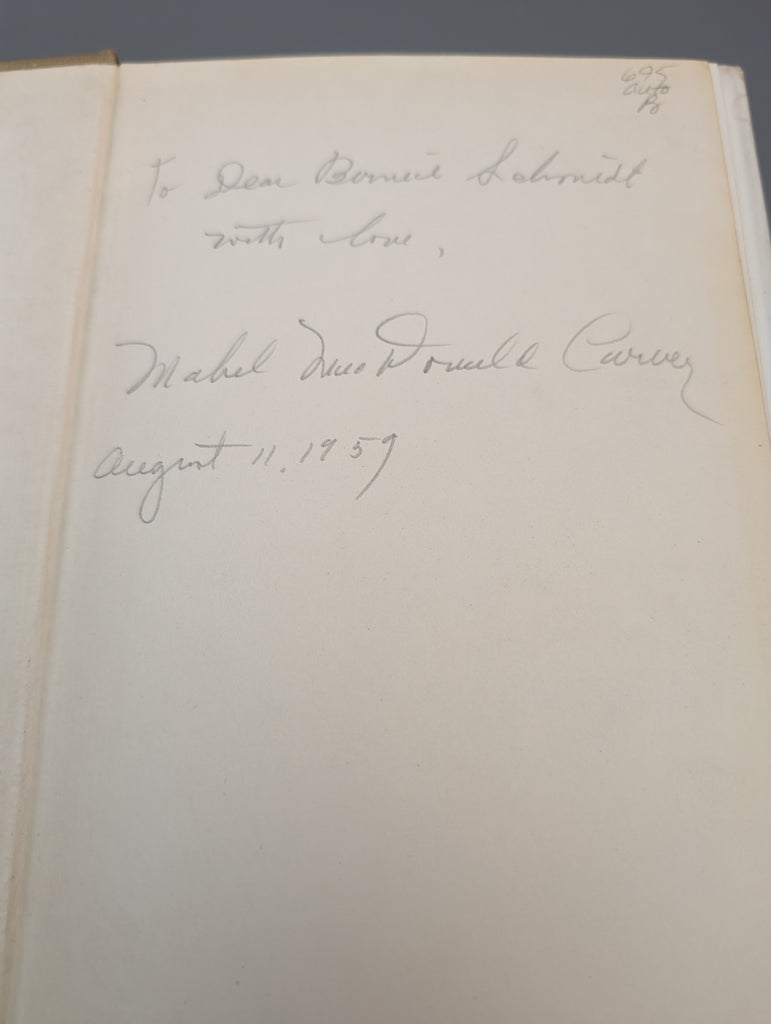 695
auto
Po
To Dear Bernice Schmidt
with love,
Mabel MacDonald Carver
August 11, 1959